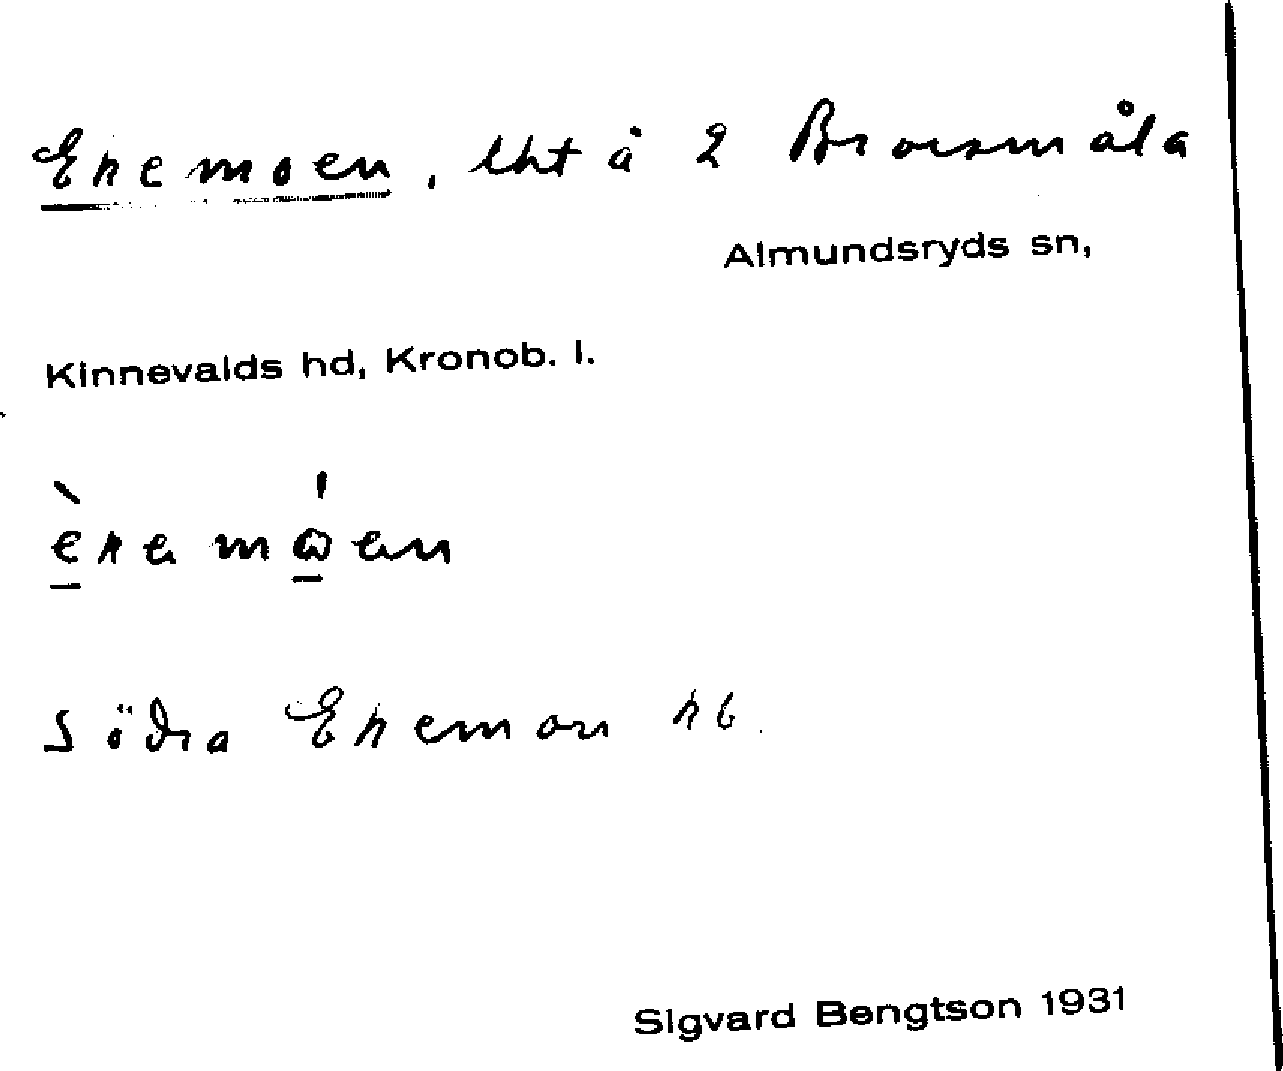 Enemoen, lht å 2 Brorsmåla
Almundsryds sn,
Kinnevalds hd, Kronob. l.
Södra Enemon
Sigvard Bengtson 1931